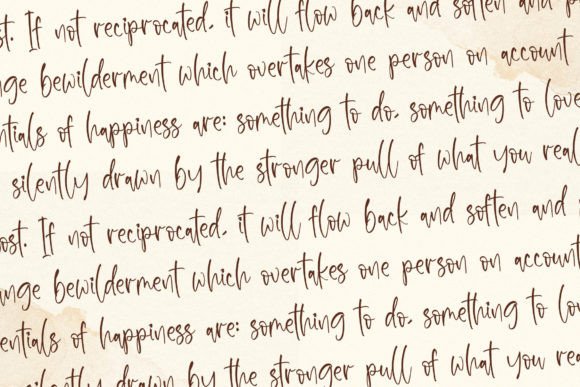 ost. If not reciprocated, it will flow back and soften and
nge bewilderment which overtakes one person on account
ntials of happiness are: something to do, something to love
silently drawn by the stronger pull of what you real
ost. If not reciprocated, it will flow back and soften and
ange bewilderment which overtakes one person on account
entials of happiness are: something to do, something to lo
silently drawn by the stronger pull of what you real